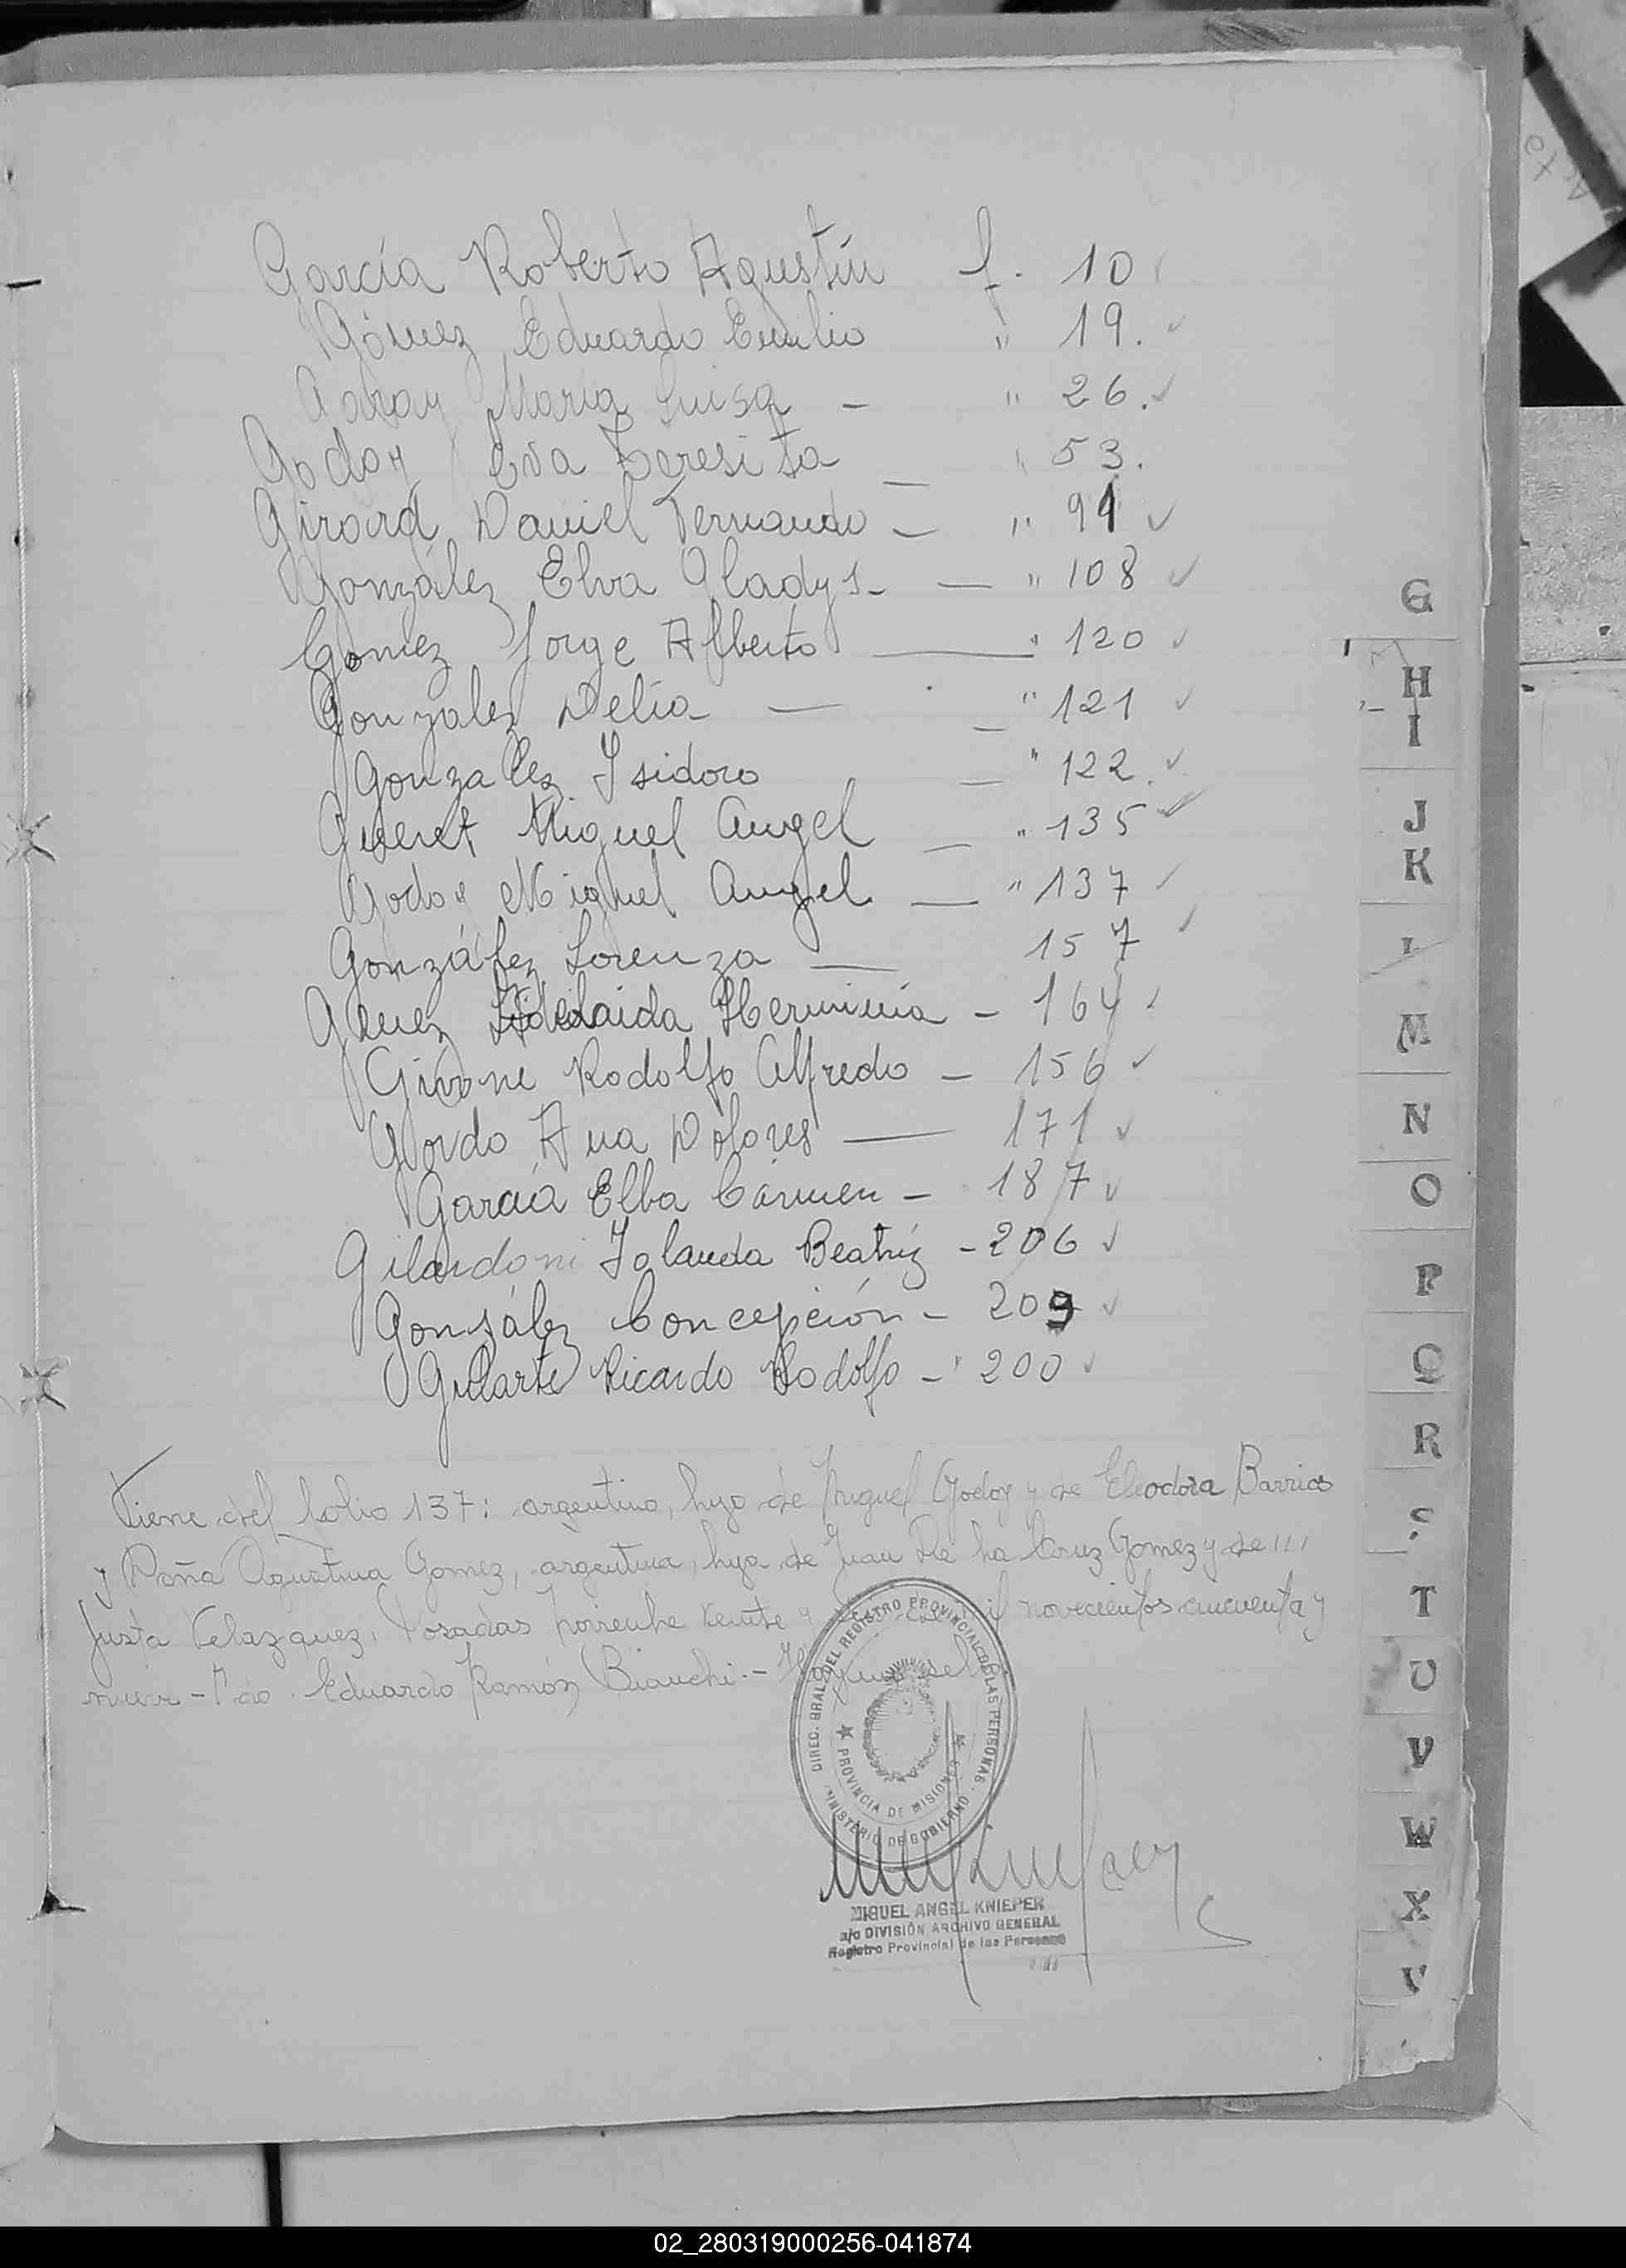 García Roberto Agustín f. 10
Gómez Eduardo Emilio " 19.
Garay María Luisa — " 26.
Godoy Eva Teresita — " 53.
Girard Daniel Fernando — " 91
González Elva Gladys — " 108
Gomez Jorge Alberto — " 120
Gonzalez Delia — " 121
Gonzalez Isidoro — " 122.
Miguel Angel — " 135
Godoy Miguel Angel — " 137
González Lorenza — 157
Adelaida Herminia — 164
Girone Rodolfo Alfredo — 156
Gordo Ana Dolores — 171
García Elba Cármen — 187
Gilardoni Iolanda Beatríz — 206
Gonsález Concepción — 209
Ricardo Rodolfo — " 200
Viene del folio 137: argentino, hijo de Miguel Godoy y de Eleodora Barrios
y Doña Agustina Gomez, argentina, hija de Juan De La Cruz Gomez y de
Justa Velazquez. Posadas noviembre veinte y novecientos cincuenta y
nueve - Fdo. Eduardo Ramón Bianchi.- sello
DIREC. GRAL. DEL REGISTRO PROVINCIAL DE LAS PERSONAS
MINISTERIO DE GOBIERNO
PROVINCIA DE MISIONES
MIGUEL ANGEL KNIEPER
a/c DIVISIÓN ARCHIVO GENERAL
Registro Provincial de las Personas
G
H
I
J
K
L
M
N
O
P
Q
R
S
T
U
V
W
X
02_280319000256-041874